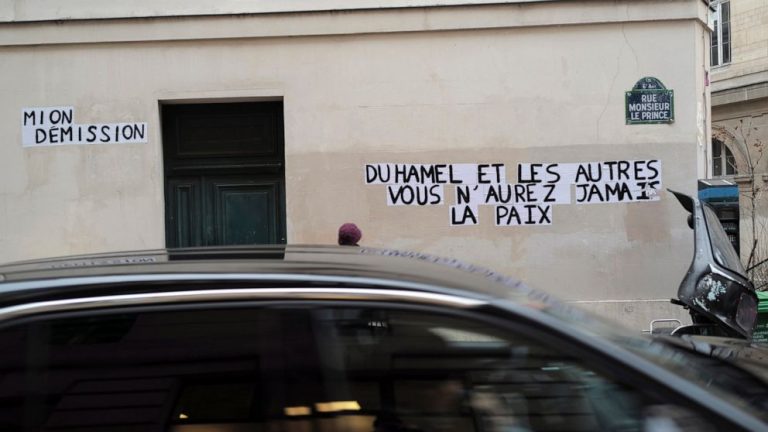 MION
DÉMISSION
6e Arrt
RUE
MONSIEUR
LE PRINCE
DUHAMEL ET LES AUTRES
VOUS N'AUREZ JAMAIS
LA PAIX